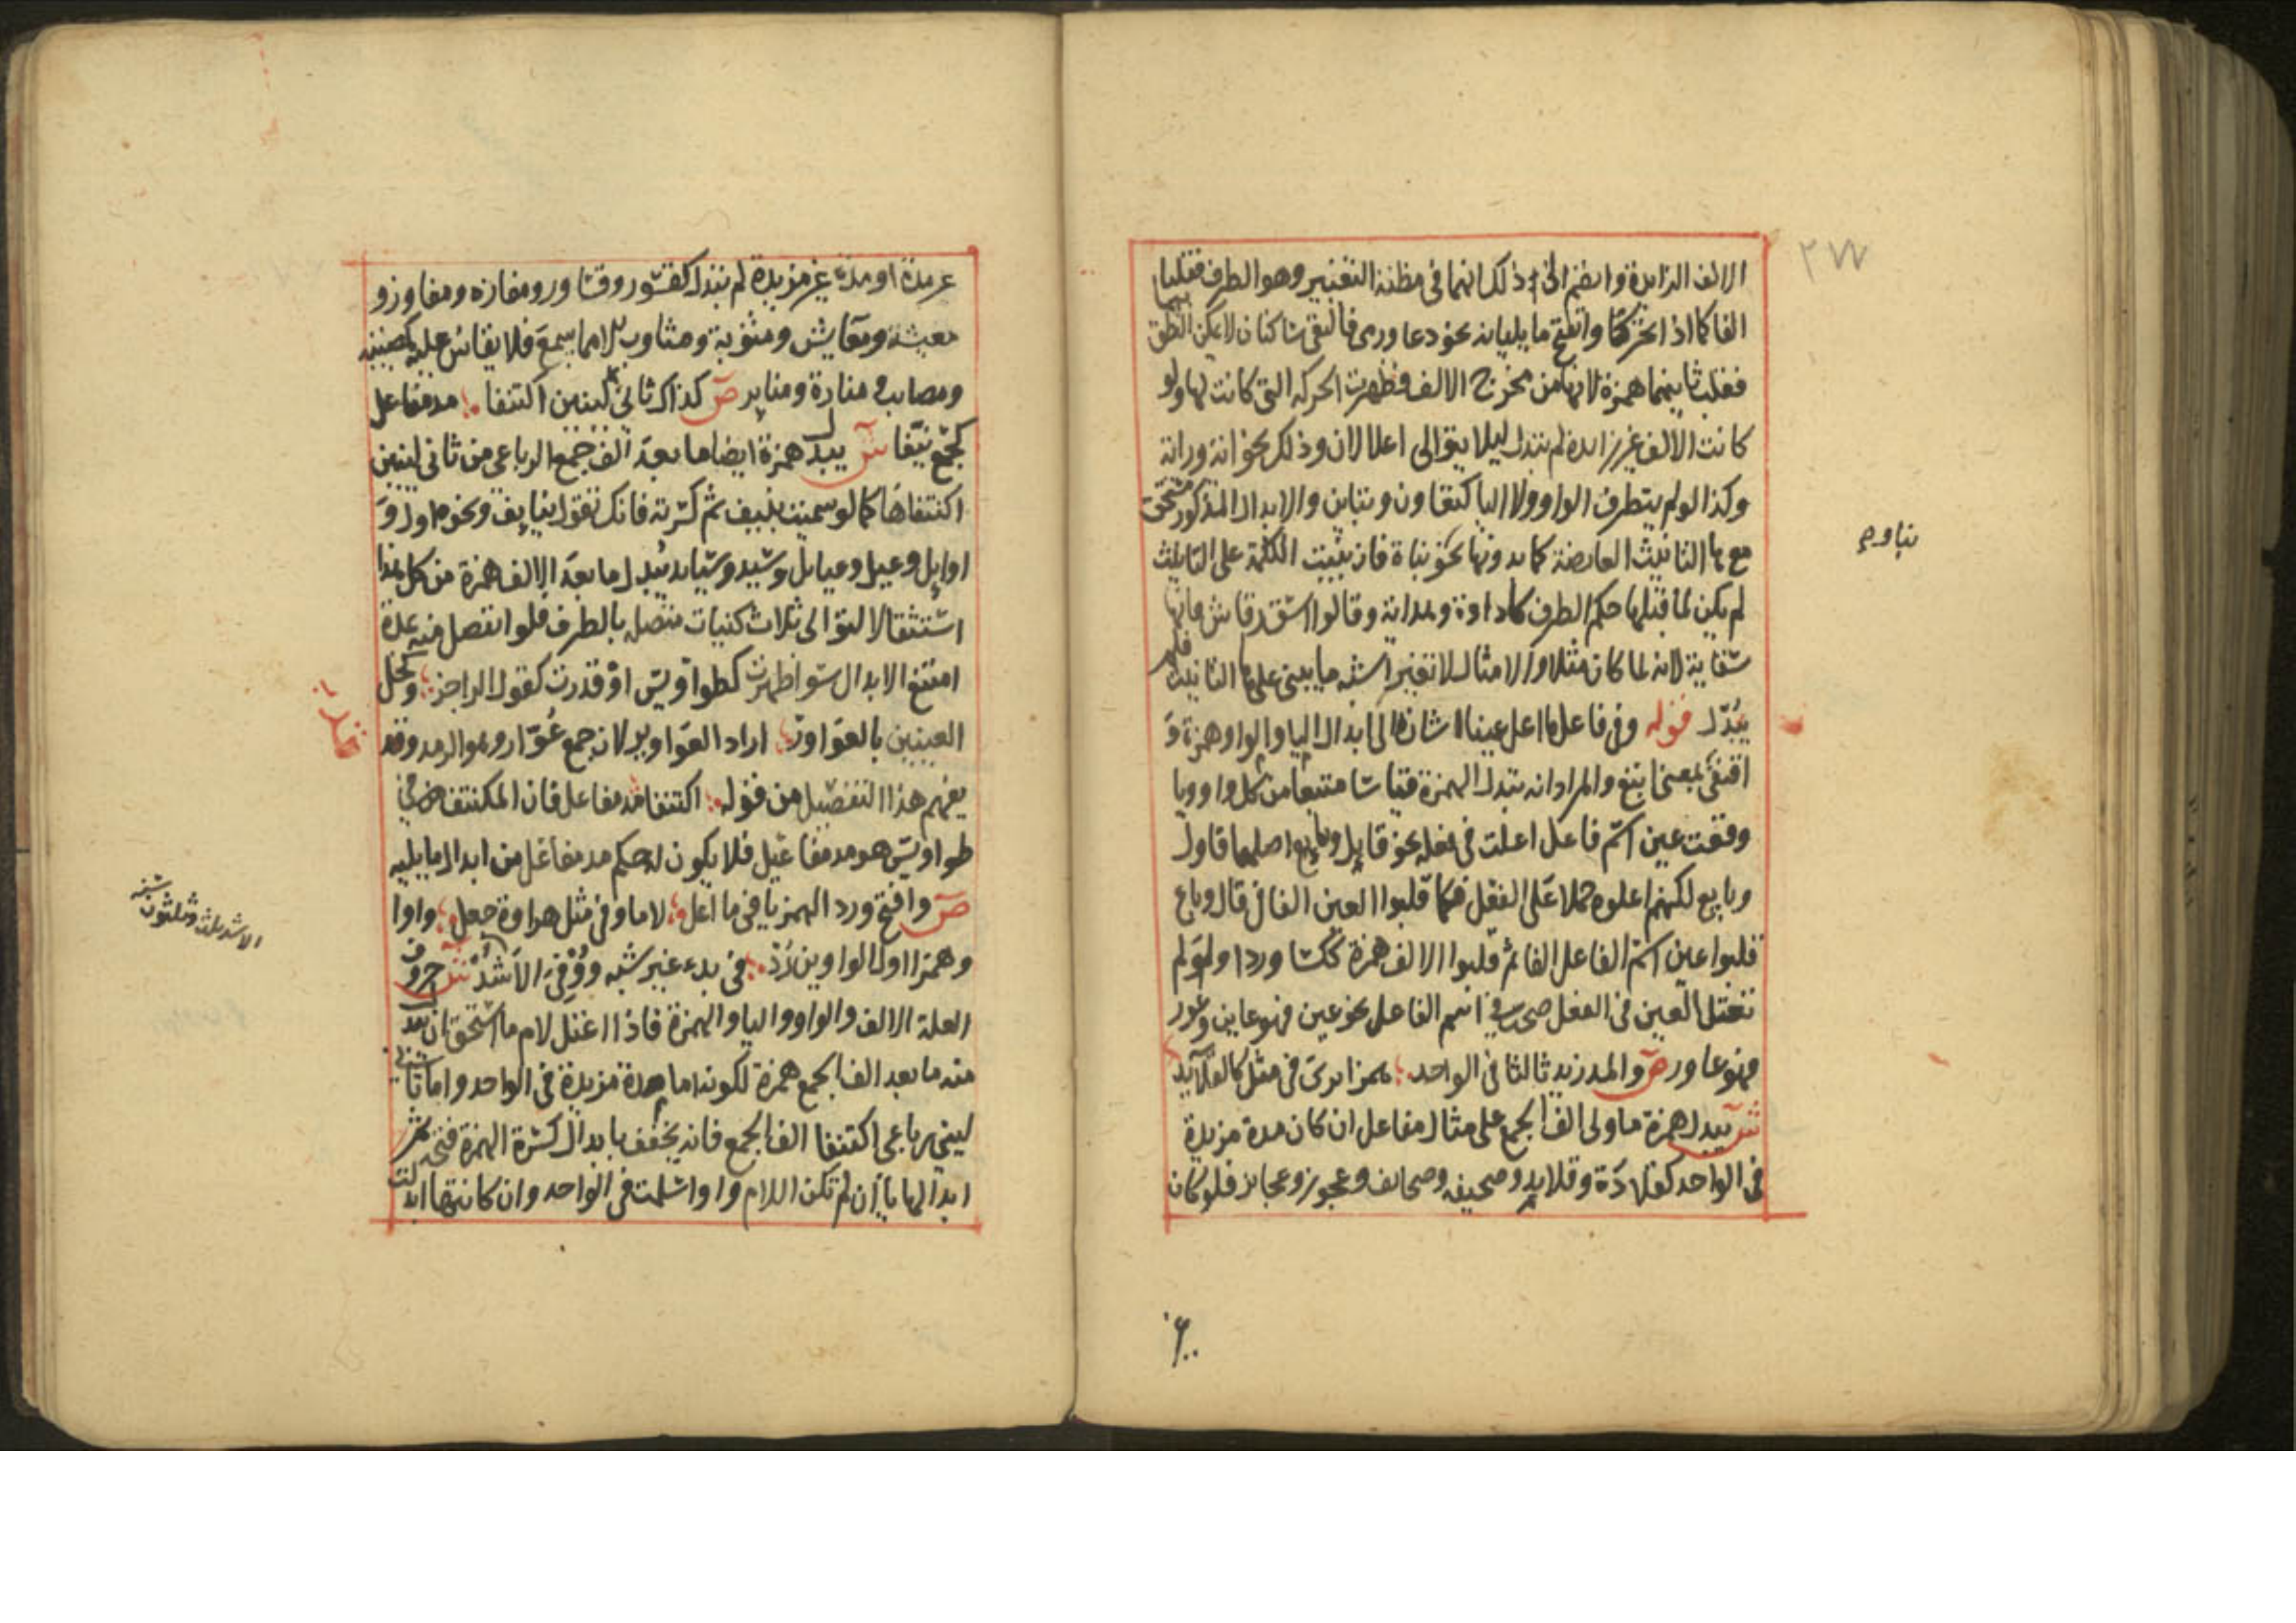 ٢٧٧
الالف الزايدة وانضم الى ذلك انهما في مظنة التغيير وهو الطرف فقلبا
الفا كما اذا تحركتا وانفتح ما يليانه نحو دعا ورمى فالتقى ساكنان لا يمكن النطق بهما
فقلبت ثانيتهما همزة لانها من مخرج الالف فظهرت الحركة التي كانت لها ولو
كانت الالف غير زايدة لم تبدل ليلا يتوالى اعلالان وذلك نحو اية وراية
وكذا لو لم يتطرف الواو ولا اليا كتعاون وتباين والابدال المذكور مستحق
مع ها التانيث العارضة كما بدونها نحو نباة فان بنيت الكلمة على التانيث
لم يكن لما قبلها حكم الطرف كاداوة وهداية وقالوا اسق رقاش فانها
سقاية لانه لما كان مثلا والامثال لا تغير اشبه ما يبنى على ها التانيث فلم
يبدل قوله وفي فاعل ما اعل عينا اشارة الى ابدال اليا والواو همزة و
اقتفي بمعنى اتبع والمراد انه تبدل الهمزة قياسا متبعا من كل واو ويا
وقعت عين اسم فاعل اعلت في فعله نحو قايل وبايع اصلهما قاول
وبايع لكنهم اعلوه حملا على الفعل فكما قلبوا العين الفا في قال وباع
قلبوا عين اسم الفاعل الفا ثم قلبوا الالف همزة ككسا وردا ولو لم
تعتل العين في الفعل صحت في اسم الفاعل نحو عين فهو عاين وعور
فهو عاور ص والمد زيد ثالثا في الواحد همزا يرى في مثل كالقلايد
ش يبدل همزة ما ولي الف الجمع على مثال مفاعل ان كان مدة مزيدة
في الواحد كقلادة وقلايد وصحيفه وصحايف وعجوز وعجايز فلو كان
نباوه
غير مدة او مدة غير مزيدة لم تبدل كقسور وقساور ومفازه ومفاوز و
معيشة ومعايش ومثوبة ومثاوب الا مما يسمع فلا يقاس عليه كمصيبة
ومصايب ومنارة ومناير ص كذاك ثاني لينين اكتنفا مد مفاعل
كجمع نيفا ش يبدل همزة ايضا ما بعد الف جمع الرباعي من ثاني لينين
اكتنفاها كما لو سميت بنيف ثم كسرته فانك تقول نيايف ونحوه اول و
اوايل وعيل وعيايل وسيد وسيايد يبدل ما بعد الالف همزة من كل هذا
استثقالا لتوالي ثلاث لينات متصله بالطرف فلو انفصل منه بمدة
امتنع الابدال سوا ظهرت كطواويس او قدرت كقول الراجز وكحل
العينين بالعواور اراد العواوير لانه جمع عوار وهو الرمد وقد
يفهم هذا التفصيل من قوله اكتنفا مد مفاعل فان المكتنف في
طواويس هو مد مفاعيل فلا يكون له حكم مد مفاعل من ابدال ما يليه
ص وافتح ورد الهمز يا في ما اعل لاما وفي مثل هراوة جعل واوا
وهمزا اول الواوين رد في بدء غير شبه ووفي الاشد ش حروف
العلة الالف والواو واليا والهمزة فاذا اعتل لام ما استحق ان يبدل
منه ما بعد الف الجمع همزة لكونه اما مدة مزيدة في الواحد واما ثاني
ليني رباعي اكتنفا الف الجمع فانه يخفف بابدال كسرة الهمزة فتحه ثم
ابدالها يا ان لم تكن اللام واوا سلمت في الواحد وان كانتها ابدلت
الاشد ثلث وثلثون سنه